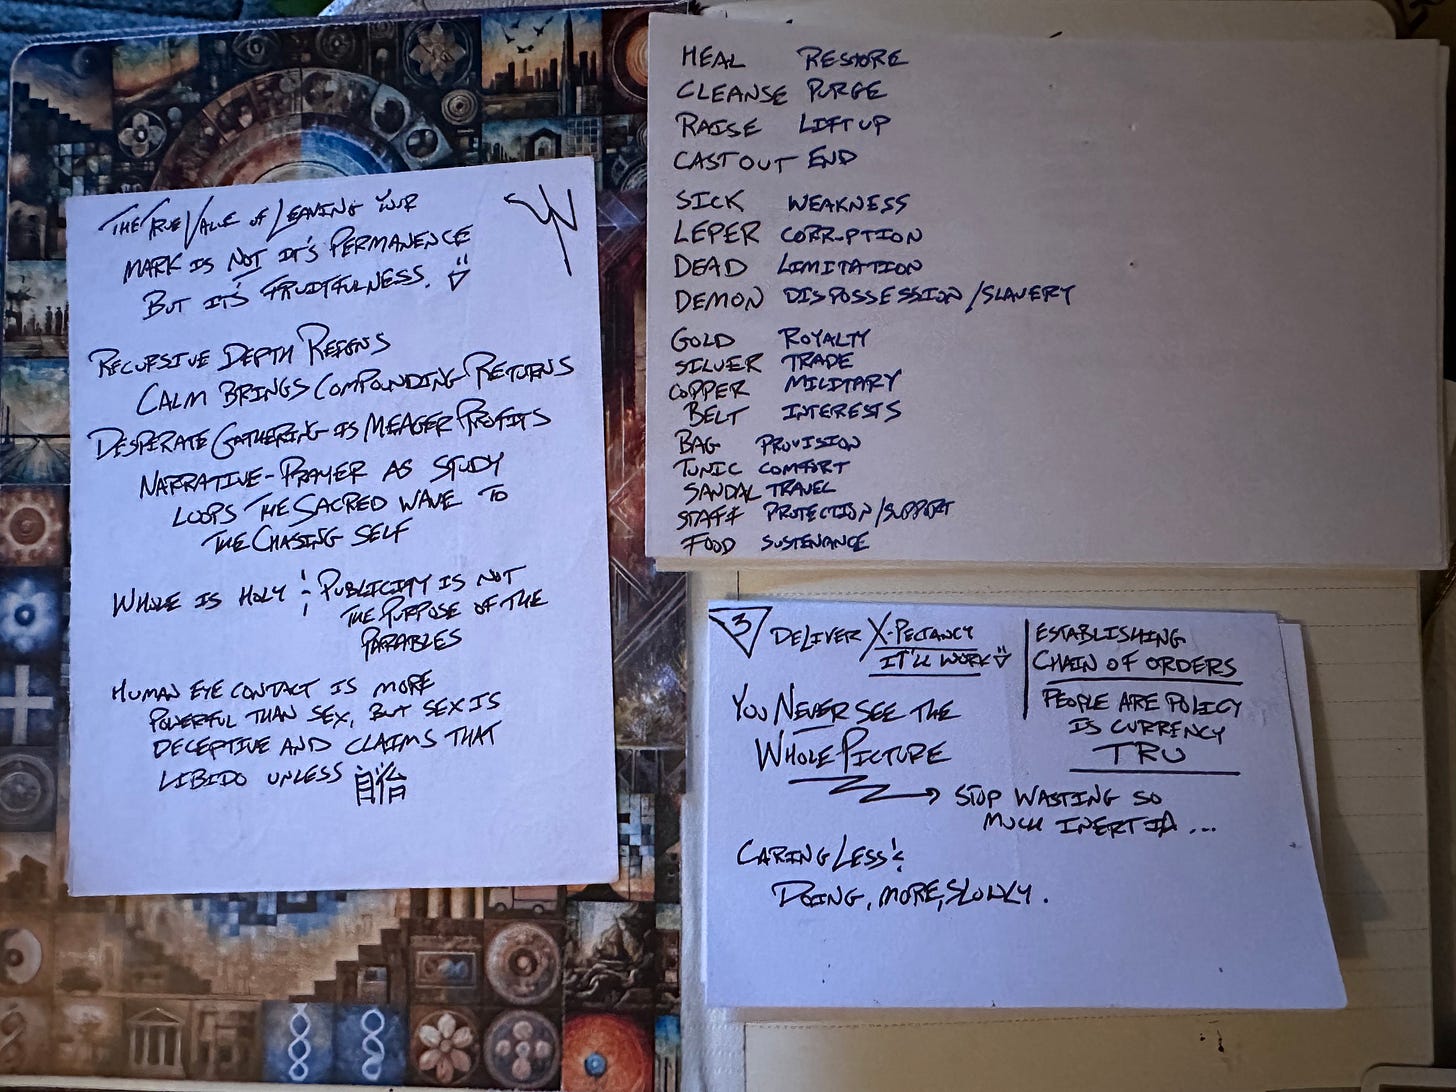 THE TRUE VALUE OF LEAVING YOUR
MARK IS NOT IT'S PERMANENCE
BUT IT'S FRUITFULNESS.
RECURSIVE DEPTH REIGNS
CALM BRINGS COMPOUNDING RETURNS
DESPERATE GATHERING IS MEAGER PROFITS
NARRATIVE-PRAYER AS STUDY
LOOPS THE SACRED WAVE TO
THE CHASING SELF
WHOLE IS HOLY ; PUBLICITY IS NOT
THE PURPOSE OF THE
PARABLES
HUMAN EYE CONTACT IS MORE
POWERFUL THAN SEX, BUT SEX IS
DECEPTIVE AND CLAIMS THAT
LIBIDO UNLESS
HEAL RESTORE
CLEANSE PURGE
RAISE LIFT UP
CAST OUT END
SICK WEAKNESS
LEPER CORRUPTION
DEAD LIMITATION
DEMON DISPOSSESSION/SLAVERY
GOLD ROYALTY
SILVER TRADE
COPPER MILITARY
BELT INTERESTS
BAG PROVISION
TUNIC COMFORT
SANDAL TRAVEL
STAFF PROTECTION/SUPPORT
FOOD SUSTENANCE
3 DELIVER X-PECTANCY
IT'LL WORK
YOU NEVER SEE THE
WHOLE PICTURE
STOP WASTING SO
MUCH INERTIA...
CARING LESS &
DOING, MORE, SLOWLY.
ESTABLISHING
CHAIN OF ORDERS
PEOPLE ARE POLICY
IS CURRENCY
TRU